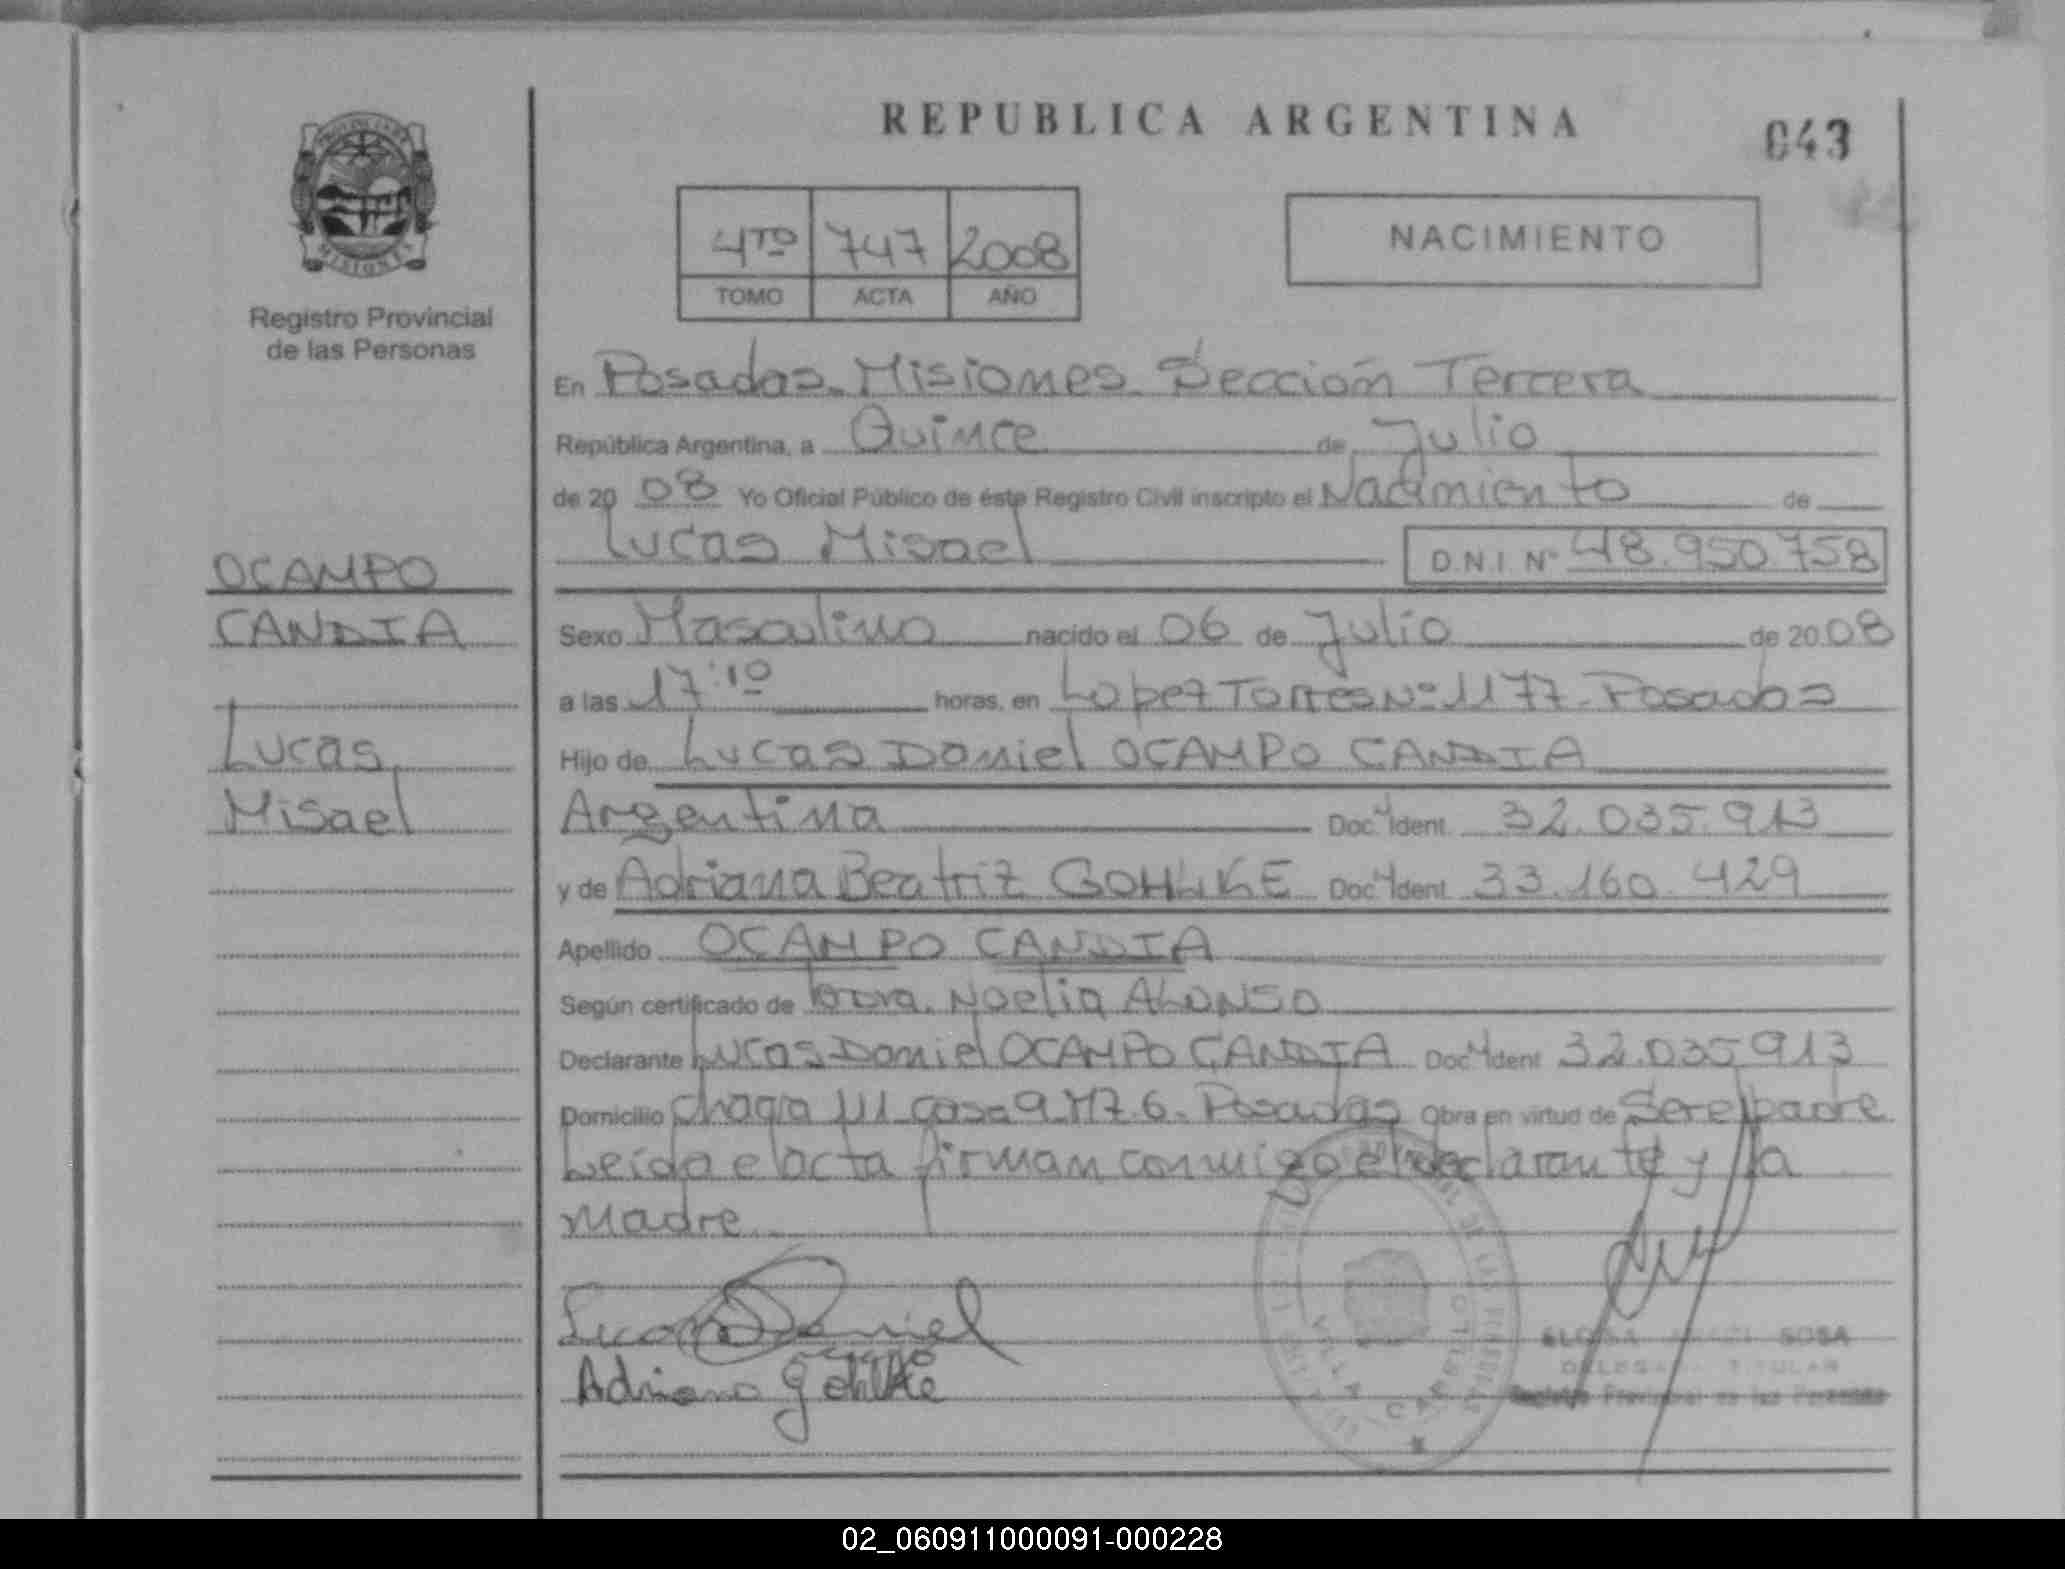 REPUBLICA ARGENTINA
043
PROVINCIA DE
MISIONES
Registro Provincial
de las Personas
4TO 747 2008
TOMO ACTA AÑO
NACIMIENTO
En Posadas Misiones Sección Tercera
República Argentina, a Quince de Julio
de 20 08 Yo Oficial Público de éste Registro Civil inscripto el Nacimiento de
Lucas Misael D.N.I. Nº 48.950.758
OCAMPO
CANDIA
Lucas
Misael
Sexo Masculino nacido el 06 de Julio de 20 08
a las 17:10 horas, en Lopez Torres Nº 1177 - Posadas
Hijo de Lucas Daniel OCAMPO CANDIA
Argentina Doc. Ident. 32.035.913
y de Adriana Beatriz GOHLKE Doc. Ident. 33.160.429
Apellido OCAMPO CANDIA
Según certificado de Noelia ALONSO
Declarante Lucas Daniel OCAMPO CANDIA Doc. Ident 32.035.913
Domicilio Chagra 111 casa 9 Mz. 6. Posadas Obra en virtud de Ser el padre
Leída el acta firman conmigo el declarante y la
madre
Lucas Daniel
Adriana Gohlke
VILLA CABELLO
SOSA
TITULAR
Registro Provincial de las Personas
02_060911000091-000228